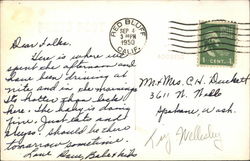 RED BLUFF
CALIF.
SEP 4
3 PM
1950
1 CENT
Dear Folks,
Here is where we
spent the afternoon and
have been driving at
nite and in the mornings
Its hotter than
here. The baby is doing
fine. Just ate and
sleeps. should be there
tomorrow sometime.
Love Dave, Babe & kids
Mr & Mrs C. H. Duckett
3611 N. Wall
Spokane, Wash
Try Wellesley